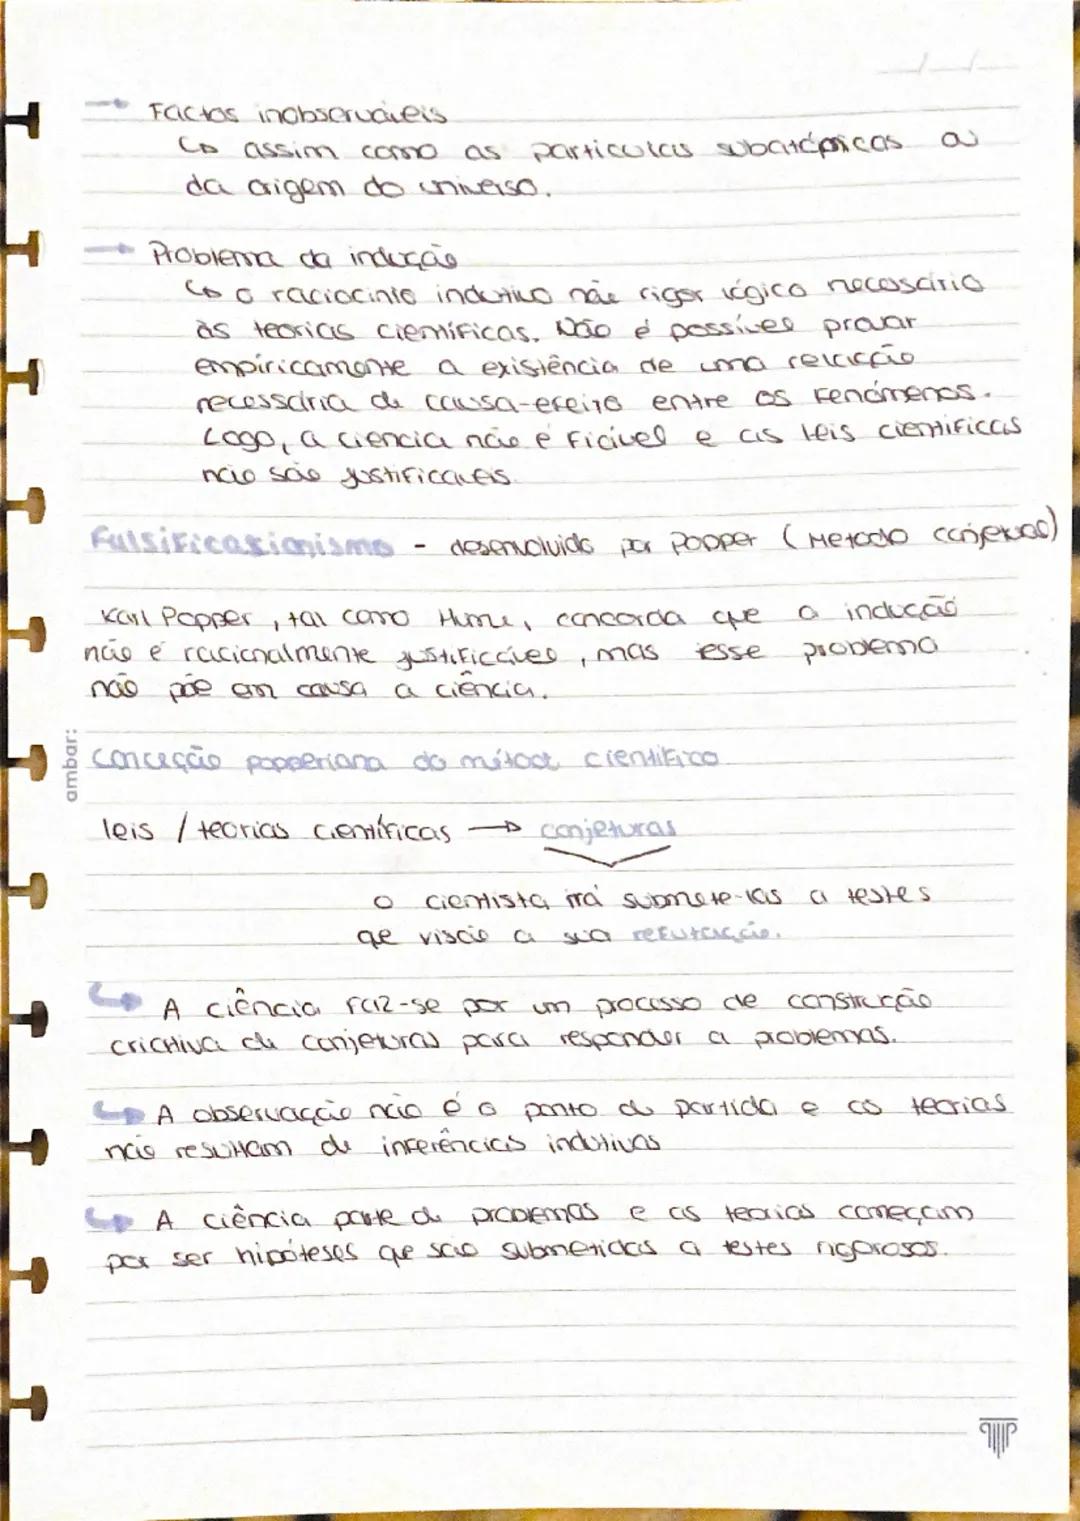 → Factos inobserváveis
↳ assim como as particulas subatómicas ou
da origem do universo.
→ Problema da indução
↳ o raciocinio indutivo não rigor lógico necessário
às teorias científicas. Não é possível provar
empiricamente a existência de uma relação
necessária de causa-efeito entre os fenómenos.
Logo, a ciencia não é fiável e as leis cientificas
não são justificaveis.
Falsificacionismo - desenvolvido por Popper (Metodo conjeturas)
Karl Popper, tal como Hume, concorda que a indução
não é racionalmente justificável, mas esse problema
não põe em causa a ciência.
ambar:
Conceção popperiana do método cientifico
leis / teorias científicas → conjeturas
o cientista irá submete-las a testes
que visão a sua refutação.
↳ A ciência faz-se por um processo de construção
criativa de conjeturas para responder a problemas.
↳ A observação não é o ponto de partida e as teorias
não resultam de inferências indutivas
↳ A ciência parte de problemas e as teorias começam
por ser hipóteses que são submetidas a testes rigorosos.